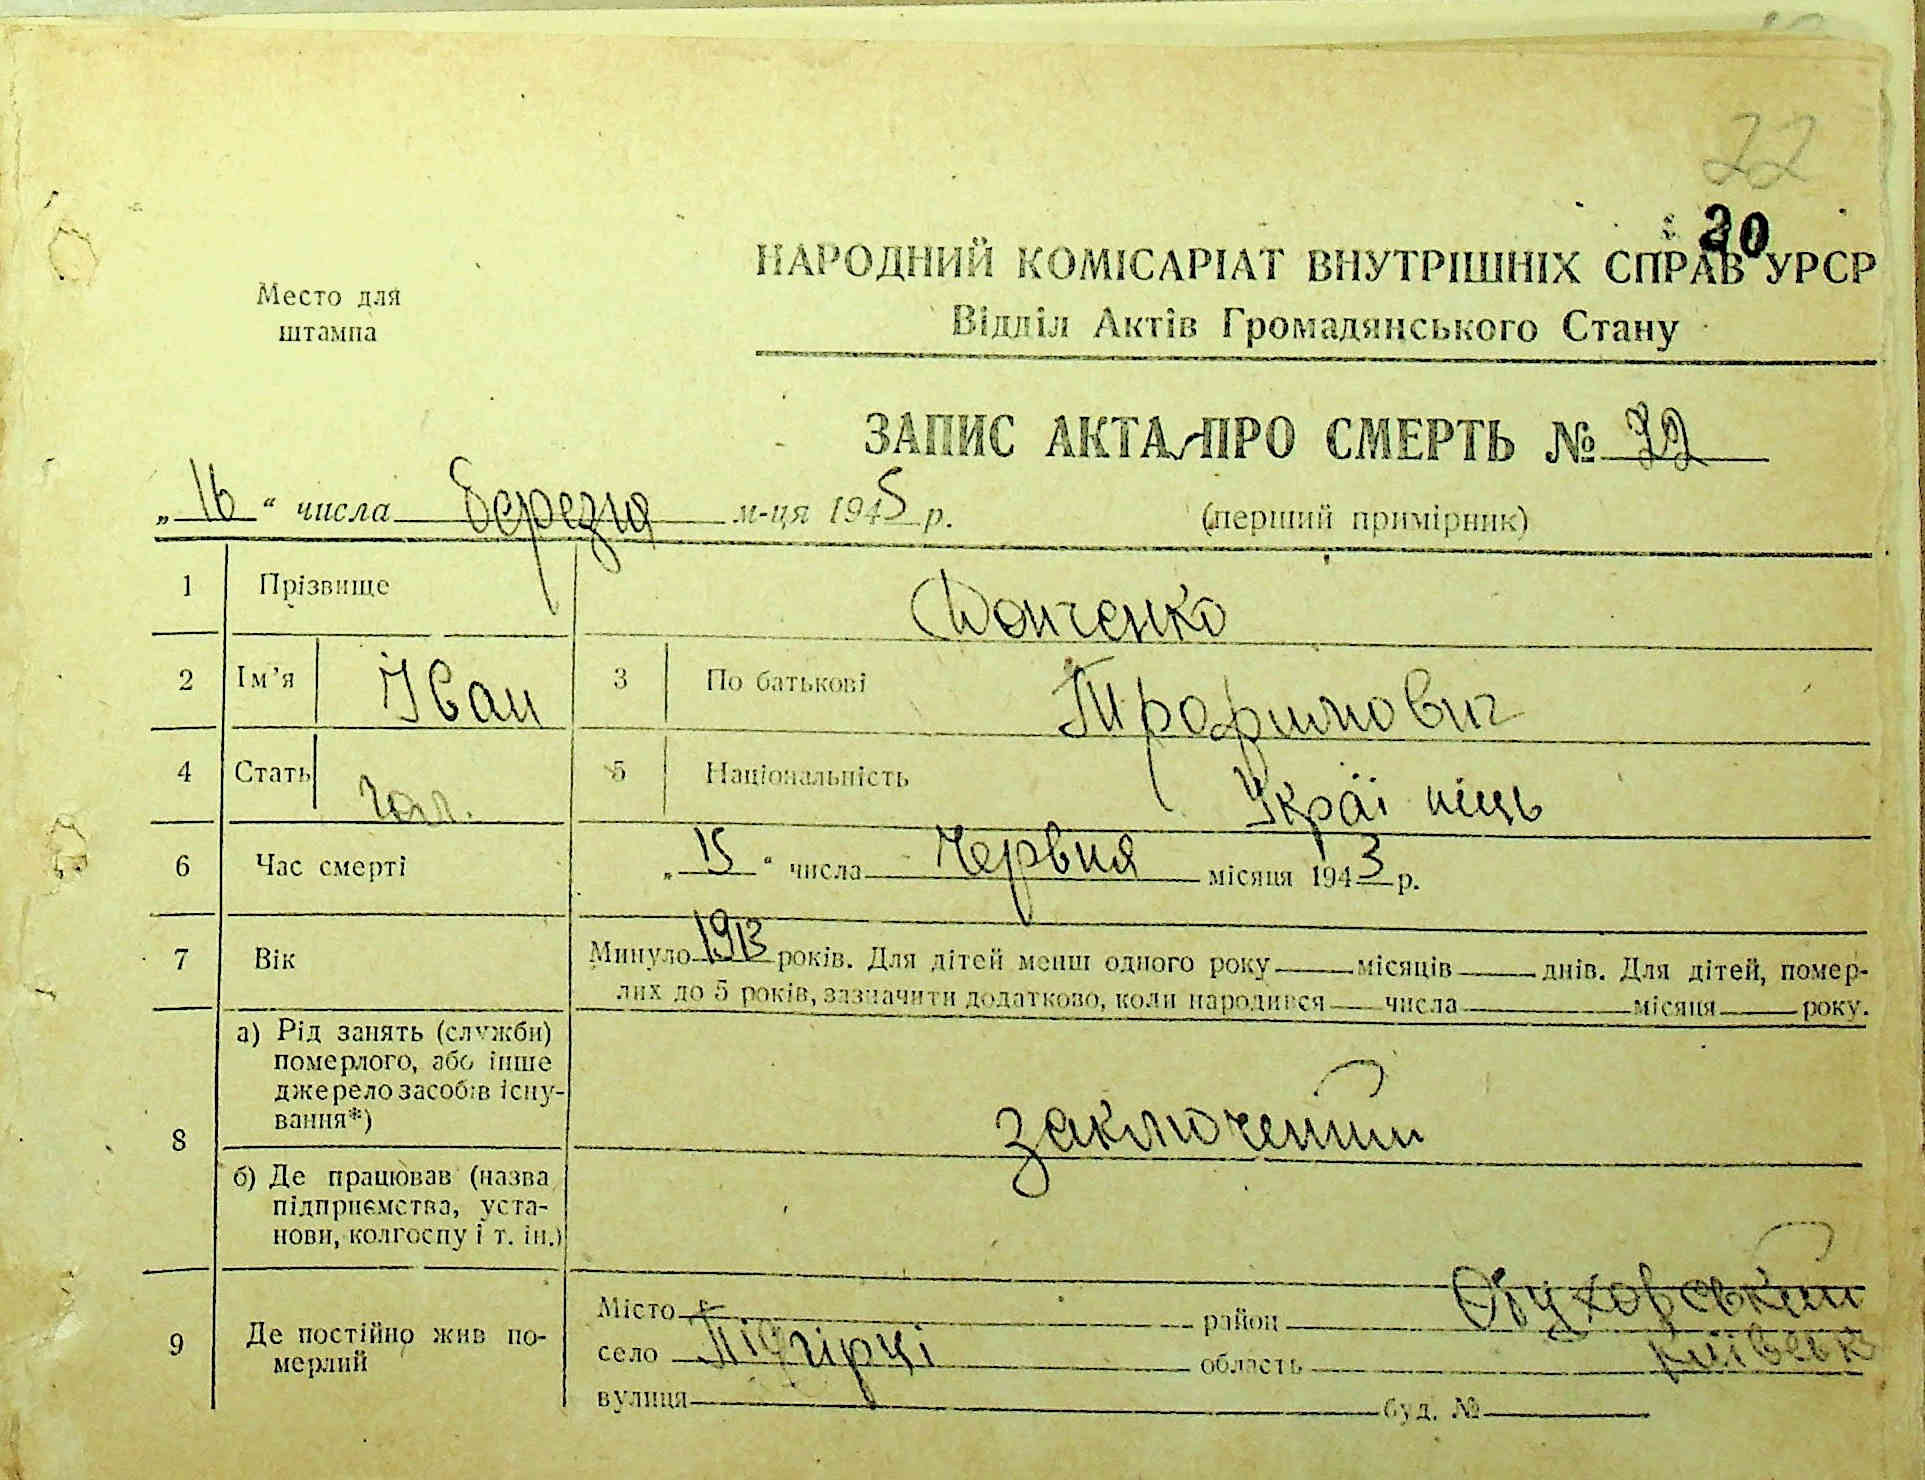 22
20
НАРОДНИЙ КОМІСАРІАТ ВНУТРІШНІХ СПРАВ УРСР
Место для штампа
Відділ Актів Громадянського Стану
ЗАПИС АКТА ПРО СМЕРТЬ № 22
„16“ числа березня м-ця 1945 р. (перший примірник)
1 Прізвище Донченко
2 Ім’я Іван 3 По батькові Трофимович
4 Стать чол. 5 Національність Українець
6 Час смерті „15“ числа Червня місяця 1943 р.
7 Вік Минуло 1913 років. Для дітей менш одного року місяців днів. Для дітей, помер-
лих до 5 років, зазначити додатково, коли народився числа місяця року.
8 а) Рід занять (служби)
померлого, або інше
джерело засобів існу-
вання*)
заключений
б) Де працював (назва
підприємства, уста-
нови, колгоспу і т. ін.)
9 Де постійно жив по-
мерлий
Місто район Обуховський
село Підгірці область Київськ
вулиця буд. №